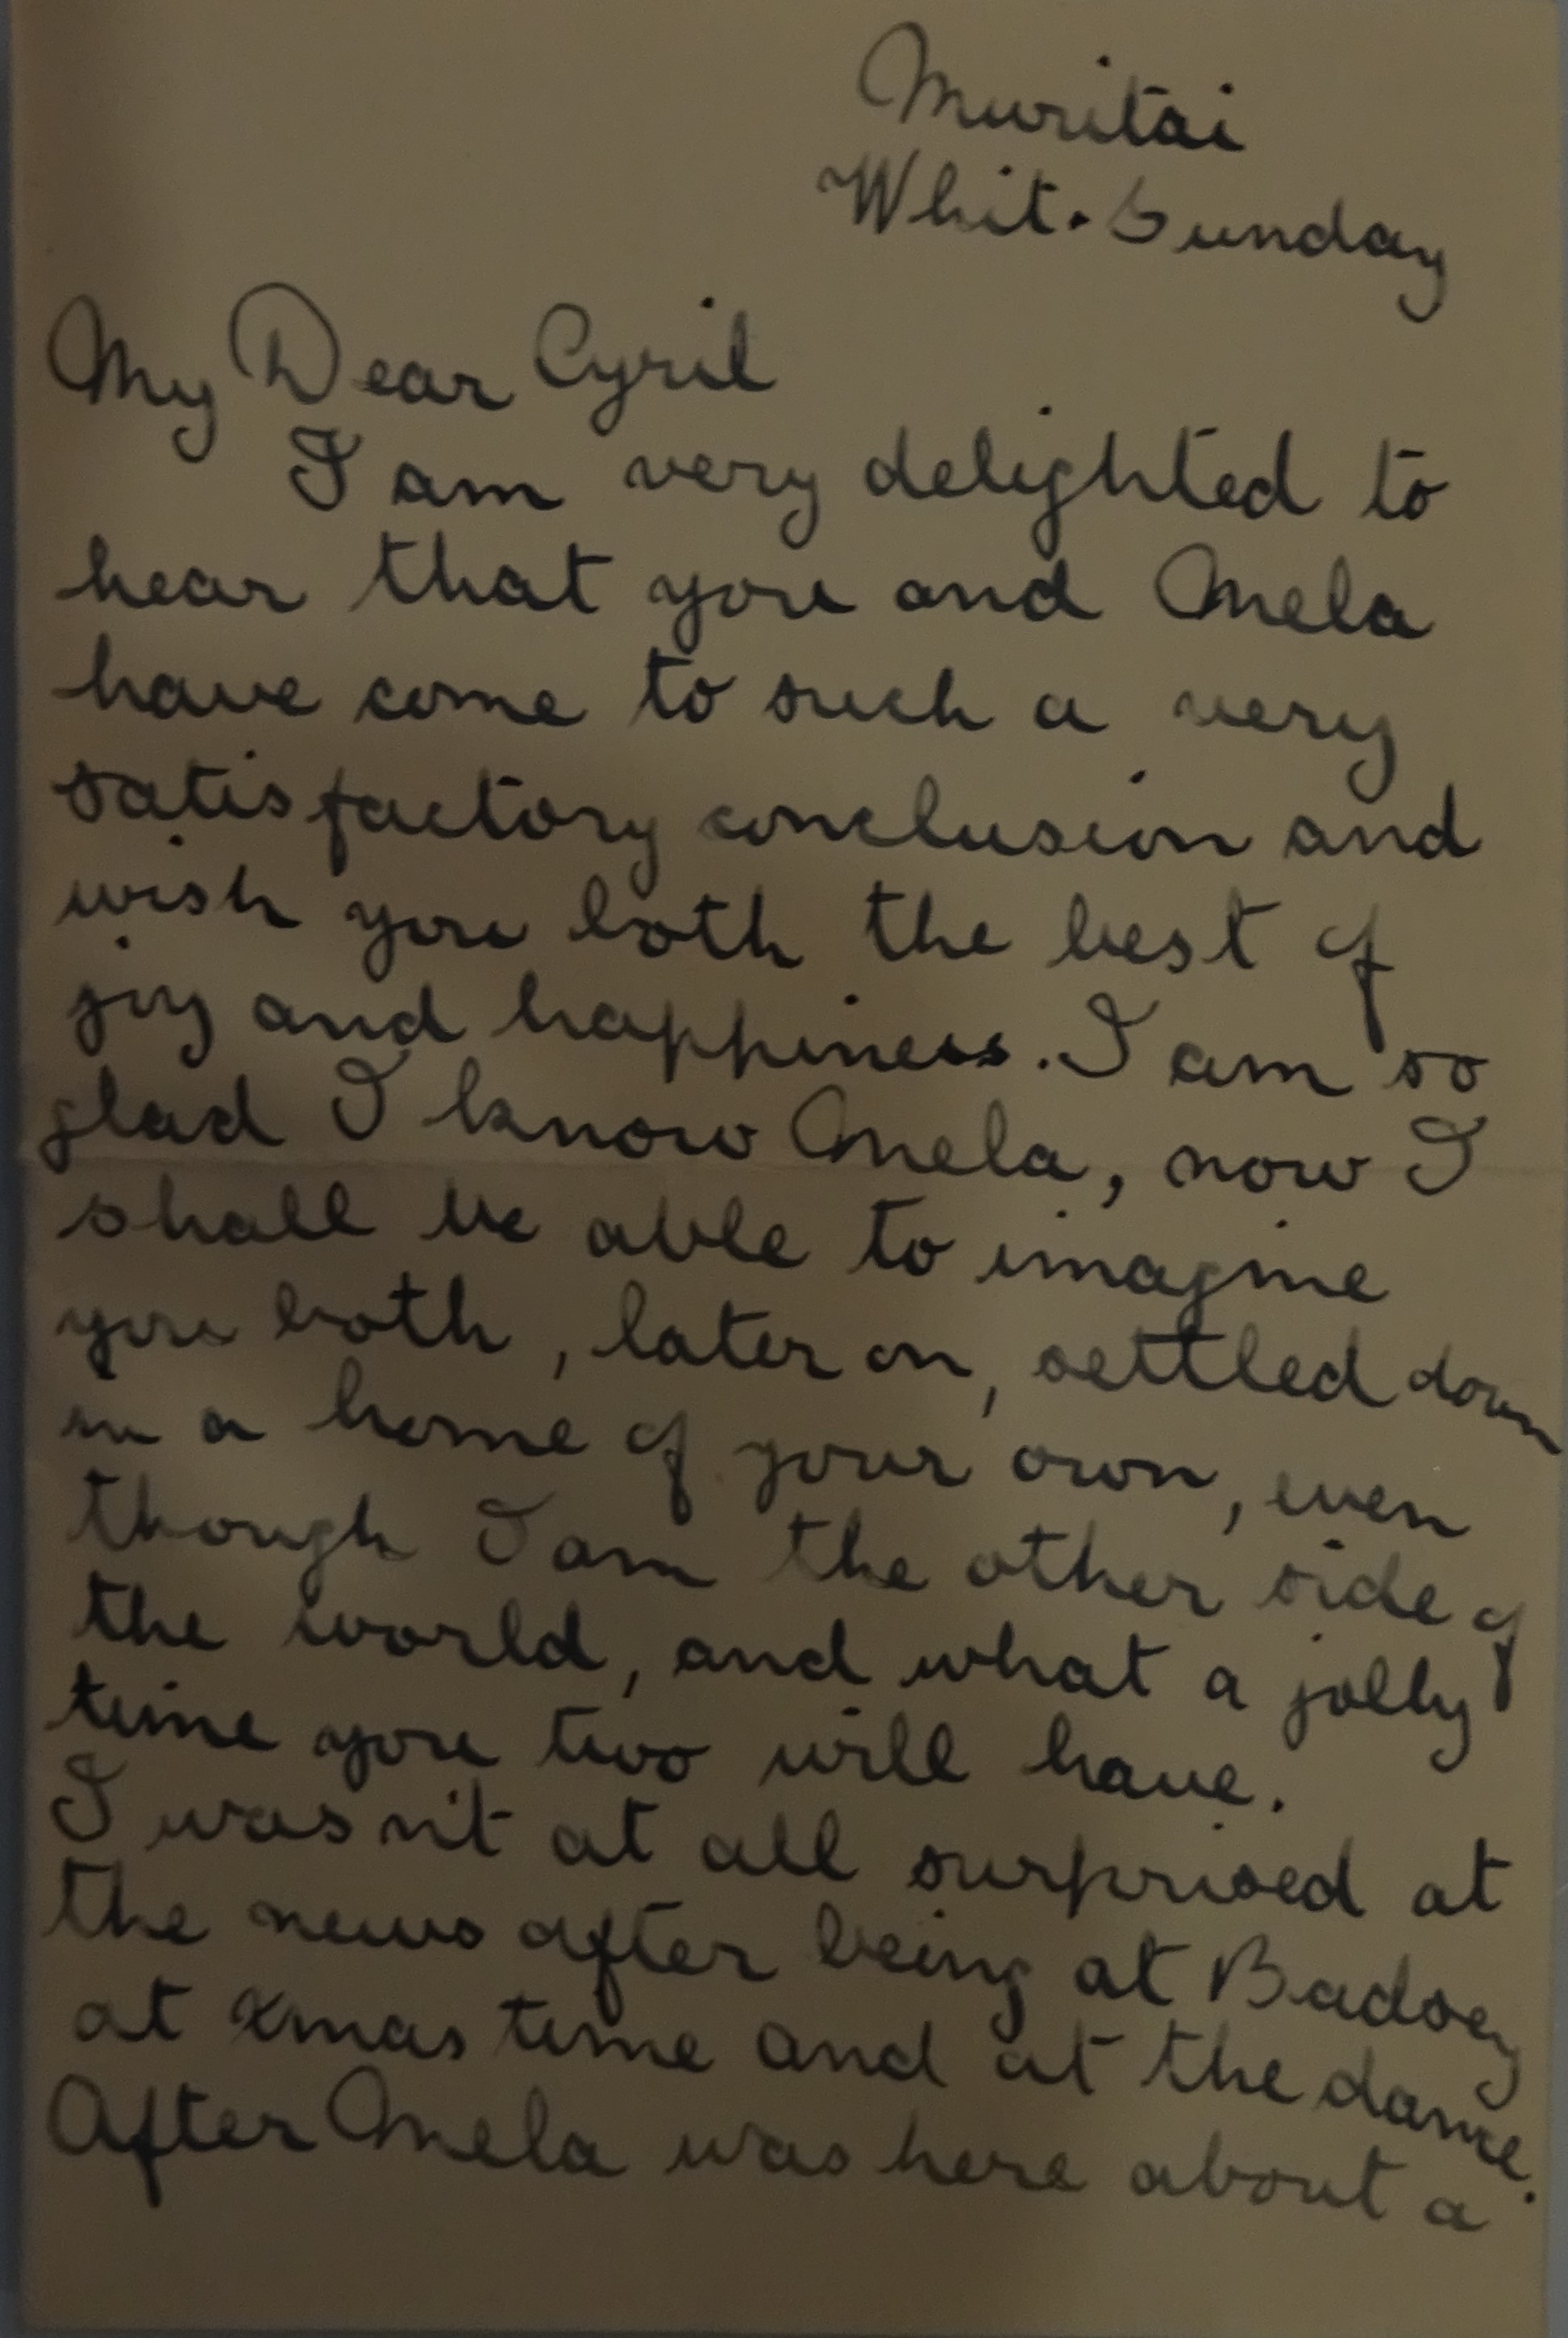 Muritai
Whit. Sunday
My Dear Cyril
I am very delighted to
hear that you and Mela
have come to such a very
satisfactory conclusion and
wish you both the best of
joy and happiness. I am so
glad I know Mela, now I
shall be able to imagine
you both, later on, settled down
in a home of your own, even
though I am the other side of
the world, and what a jolly
time you two will have.
I wasn't at all surprised at
the news after being at Badsey
at Xmas time and at the dance.
After Mela was here about a